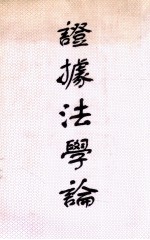 證據法學論